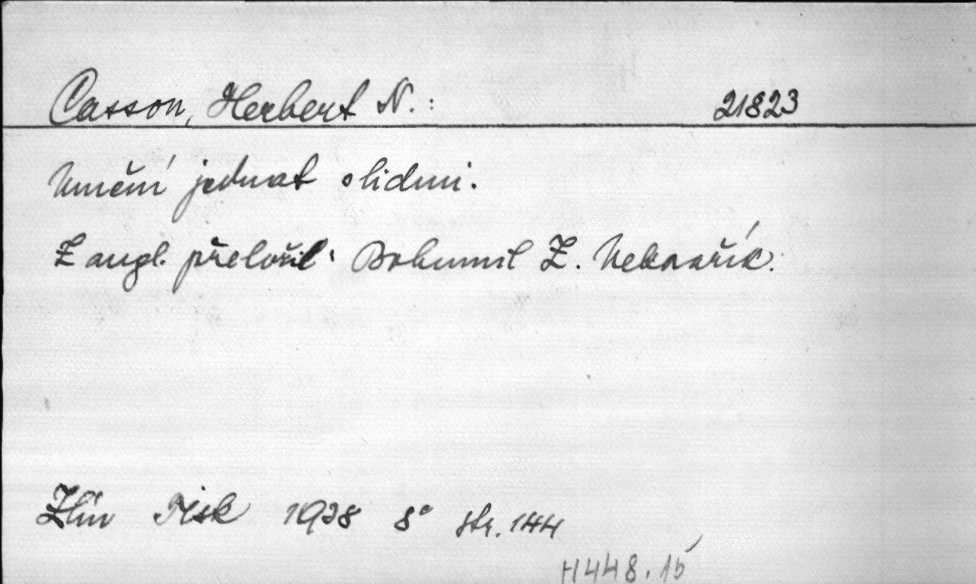 Casson, Herbert N.: 21823
Umění jednat s lidmi.
Z angl. přeložil: Bohumil Z.
Zlín Tisk 1938 8° str. 144
H448.15